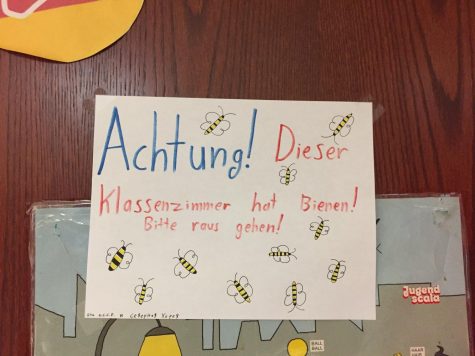 Achtung! Dieser
Klassenzimmer hat Bienen!
Bitte raus gehen!
Jugend
scala
BALL
BALL
HAAR